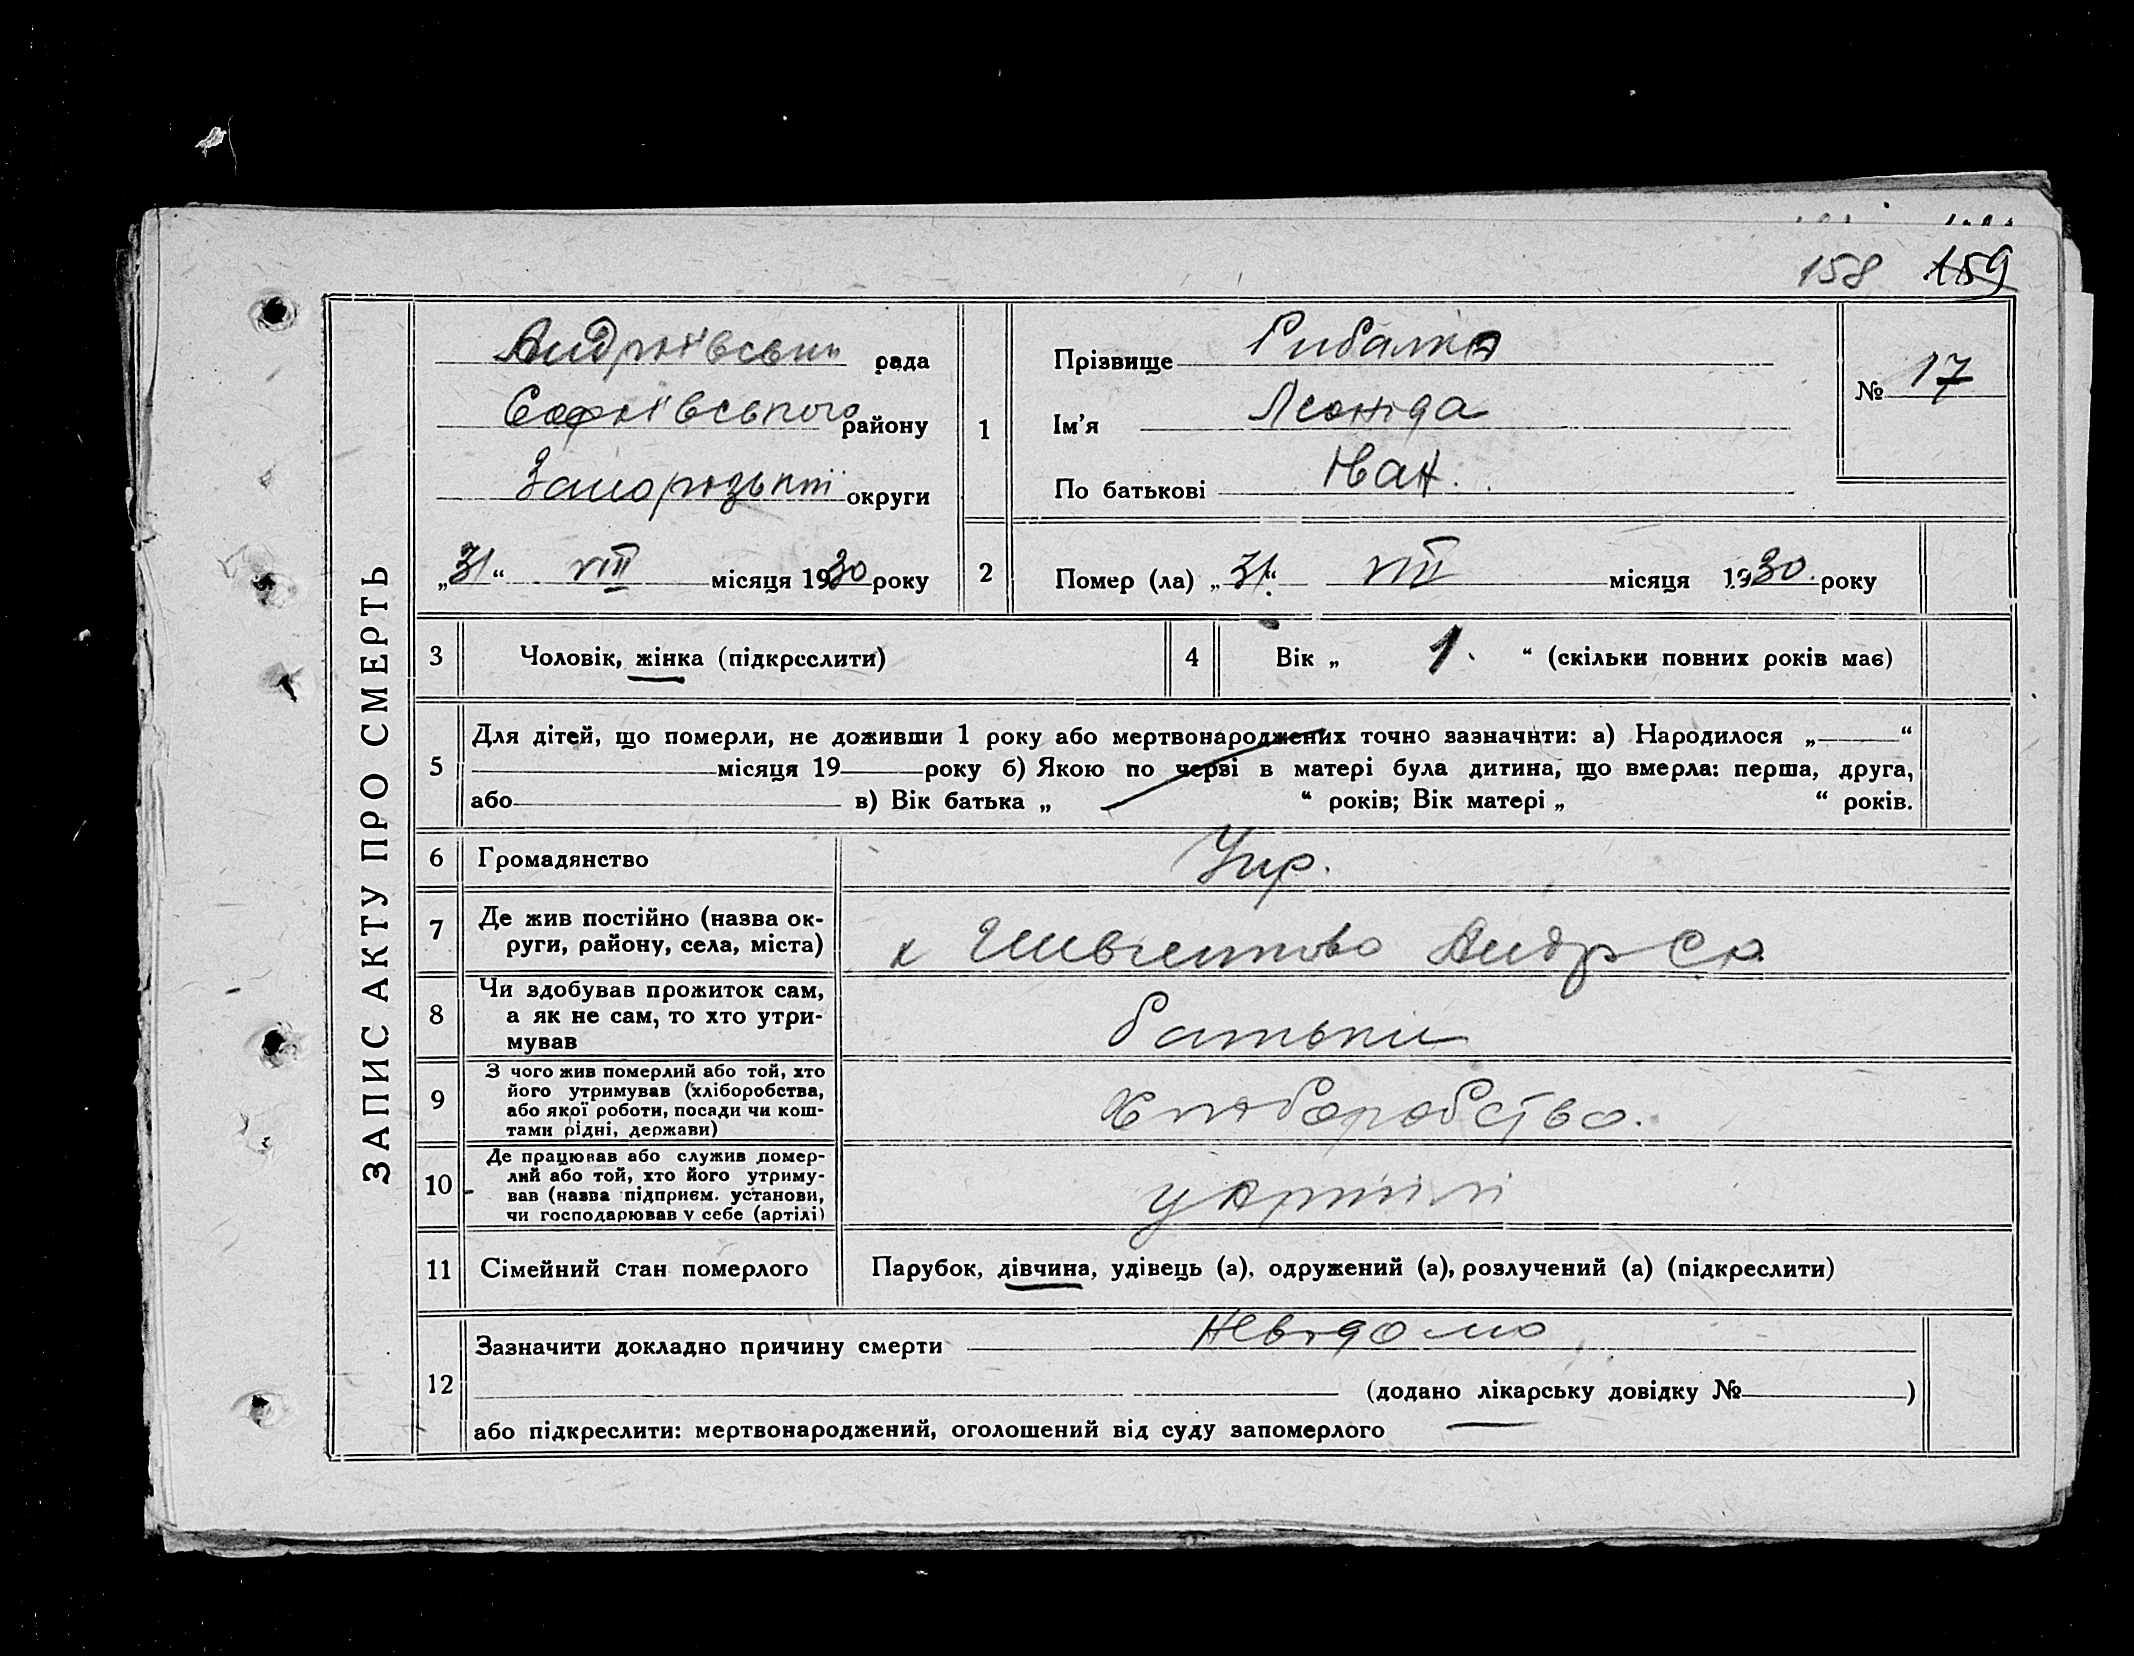 158 159
ЗАПИС АКТУ ПРО СМЕРТЬ
Андріївськи рада
Софіївського району
Запорізької округи
„31“ VIII місяця 1930 року
1
Прізвище Рибалка
Ім’я Леоніда
По батькові Іван.
№ 17
2
Помер (ла) „31“ VIII місяця 1930. року
3 Чоловік, жінка (підкреслити)
4 Вік „ 1. “ (скільки повних років має)
5
Для дітей, що померли, не доживши 1 року або мертвонароджених точно зазначити: а) Народилося „ “
місяця 19 року б) Якою по черві в матері була дитина, що вмерла: перша, друга,
або в) Вік батька „ “ років; Вік матері „ “ років.
6 Громадянство Укр.
7 Де жив постійно (назва ок-
руги, району, села, міста)
х Андр С.р.
8 Чи здобував прожиток сам,
а як не сам, то хто утри-
мував
батьки
9 З чого жив померлий або той, хто
його утримував (хліборобства,
або якої роботи, посади чи кош-
тами рідні, держави)
хліборобство.
10 Де працював або служив помер-
лий або той, хто його утриму-
вав (назва підприєм. установи,
чи господарював у себе (артілі)
у артілі
11 Сімейний стан померлого Парубок, дівчина, удівець (а), одружений (а), розлучений (а) (підкреслити)
12 Зазначити докладно причину смерти невідомо
(додано лікарську довідку № )
або підкреслити: мертвонароджений, оголошений від суду запомерлого